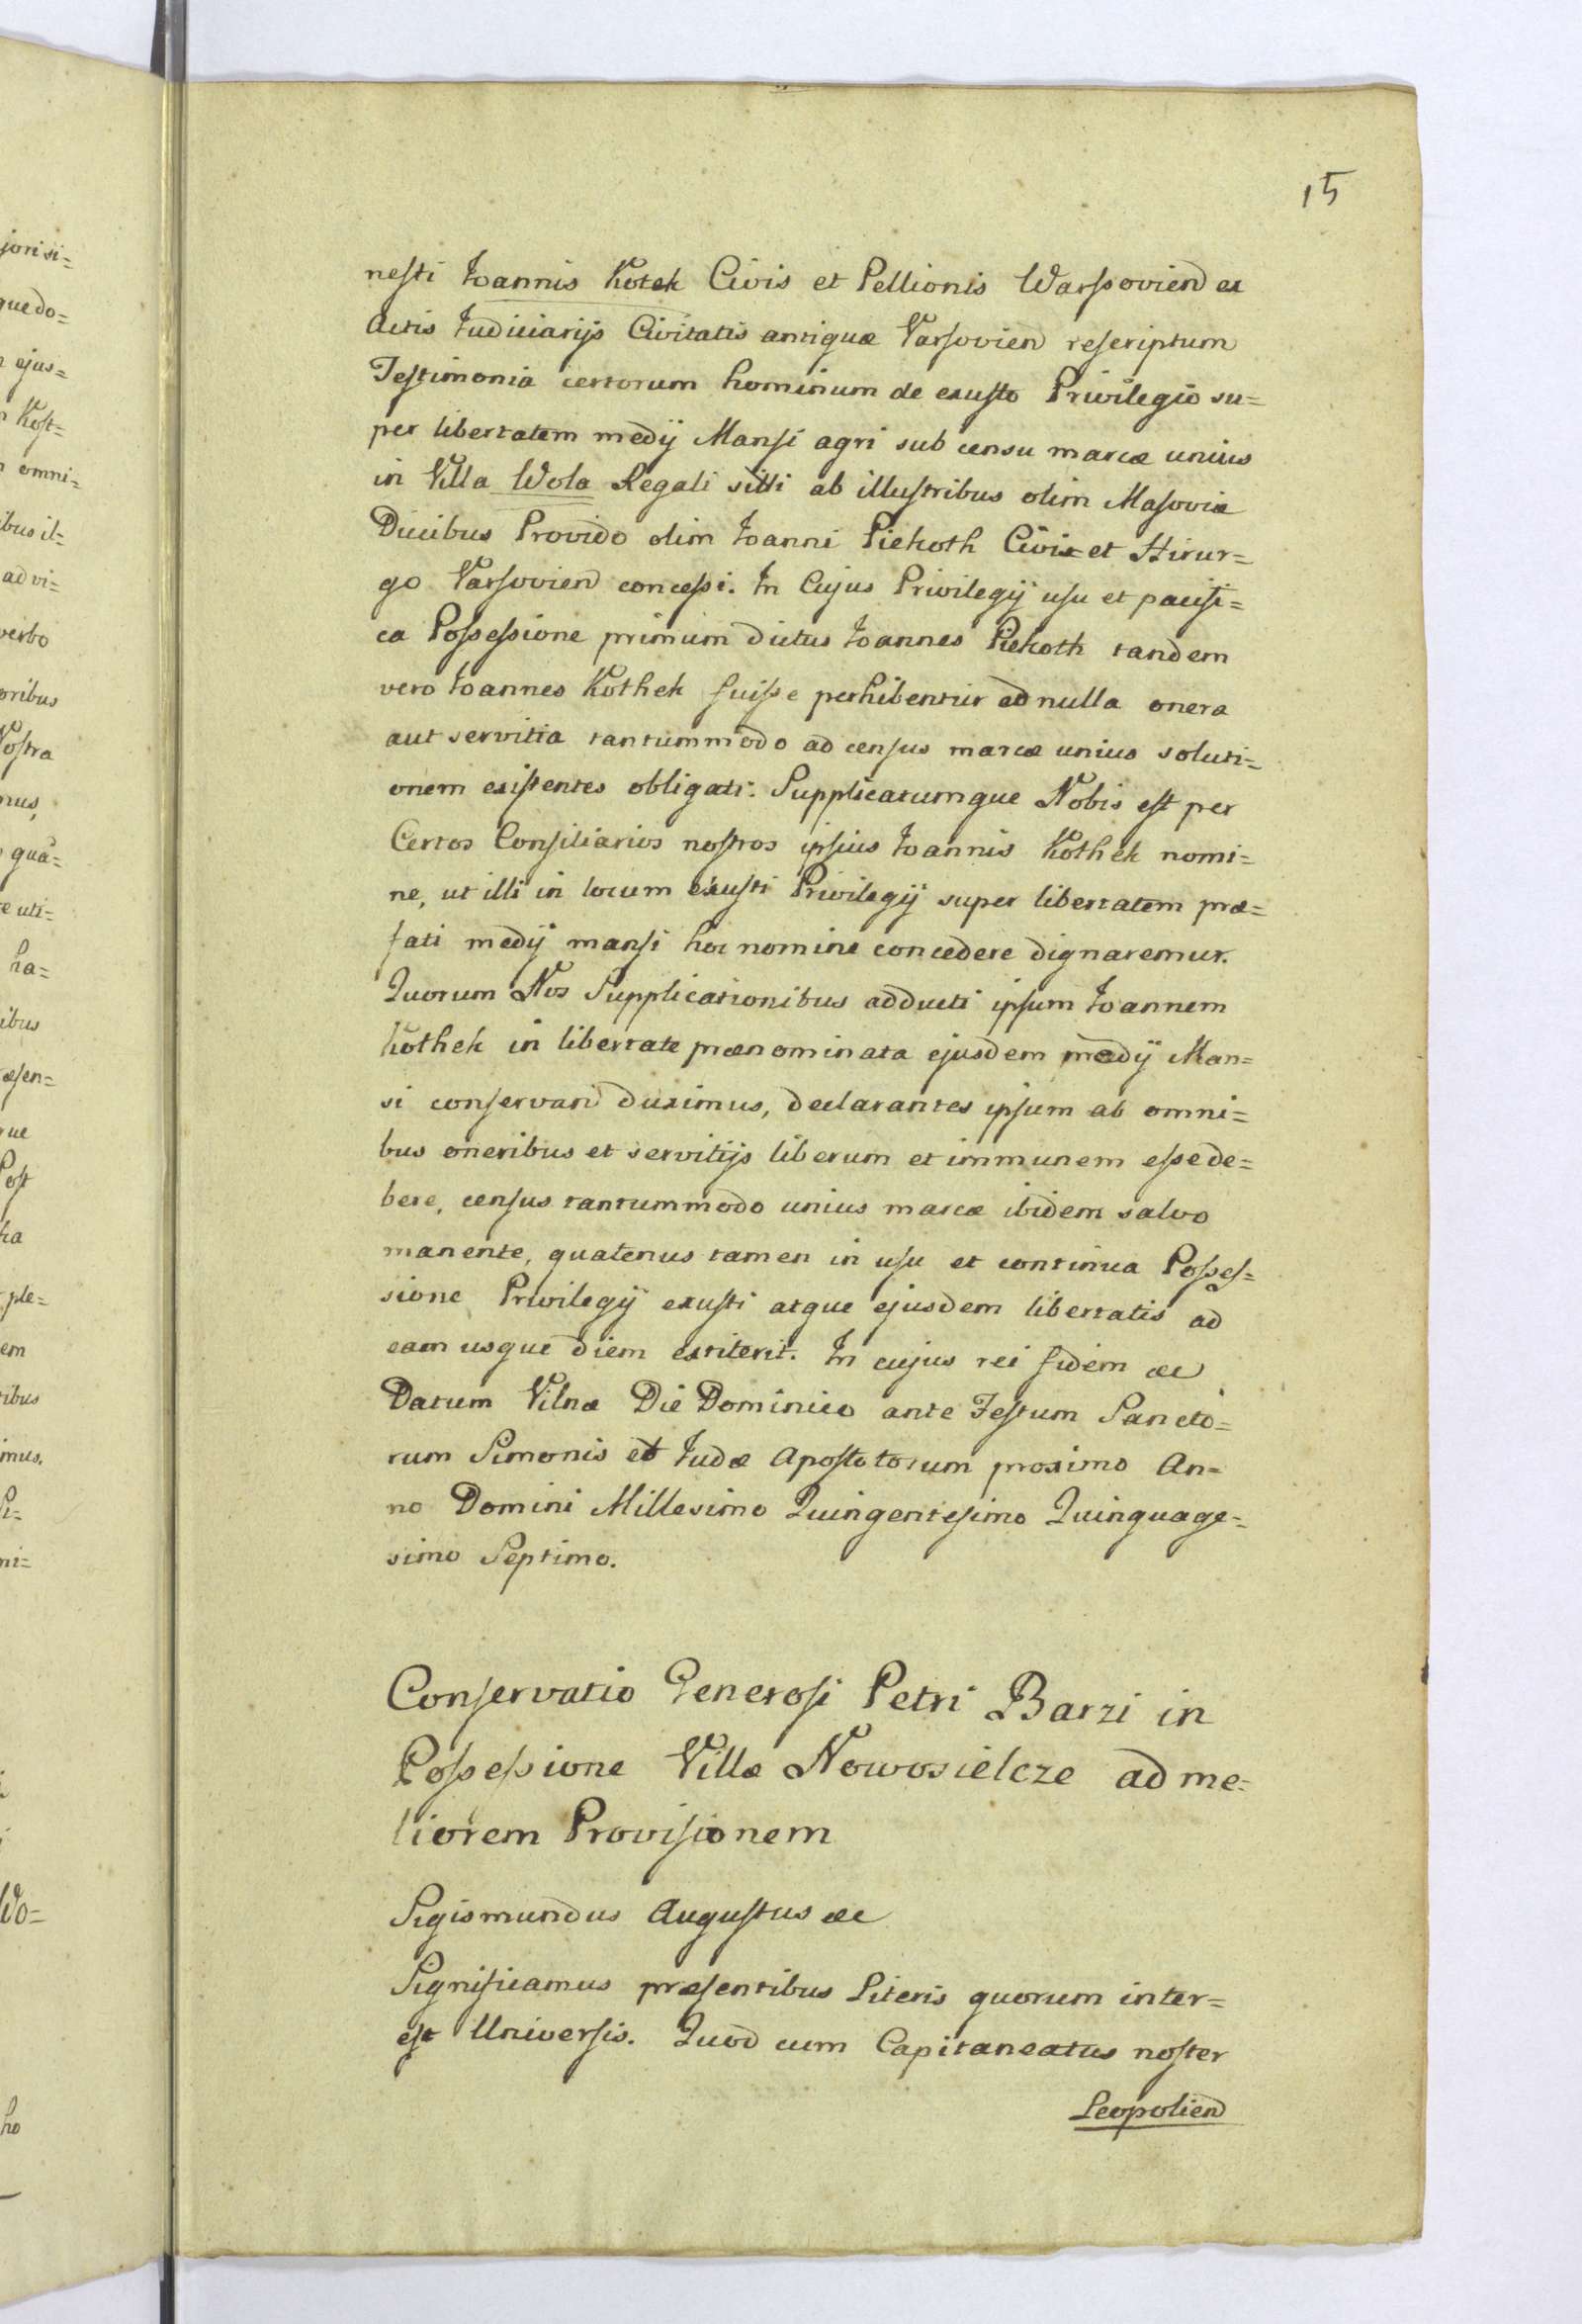 15
nesti Joannis Kotek Civis et Pellionis Warssovien ex
Actis Judiciarijs Civitatis antiquæ Varsovien rescriptum
Testimonia certorum hominum de exusto Privilegio su=
per libertatem medij Mansi agri sub censu marcæ unius
in Villa Wola Regali sitti ab illustribus olim Masoviæ
Ducibus Provido olim Joanni Piekoth Civi et Hirur=
go Varsovien concessi. In Cujus Privilegij usu et pacifi=
ca Possessione primum dictus Joannes Piekoth tandem
vero Joannes Kothek fuisse perhibentur ad nulla onera
aut servitia tantummodo ad census marcæ unius soluti=
onem existentes obligati. Supplicatumque Nobis est per
Certos Consiliarios nostros ipsius Joannis Kothek nomi=
ne, ut illi in locum exusti Privilegij super libertatem præ=
fati medij mansi hoc nomine concedere dignaremur.
Quorum Nos Supplicationibus adducti ipsum Joannem
Kothek in libertate prænominata ejusdem medij Man=
si conservan duximus, declarantes ipsum ab omni=
bus oneribus et servitijs liberum et immunem esse de=
bere, census tantummodo unius marcæ ibidem salvo
manente, quatenus tamen in usu et continua Posses=
sione Privilegij exusti atque ejusdem libertatis ad
eam usque diem extiterit. In cujus rei fidem &c
Datum Vilnæ Die Dominico ante Festum Sancto=
rum Simonis et Judæ Apostolorum proximo An=
no Domini Millesimo Quingentesimo Quinquage=
simo Septimo.
Conservatio Generosi Petri Barzi in
Possessione Villæ Nowosielcze ad me=
liorem Provisionem
Sigismundus Augustus &c
Significamus præsentibus Literis quorum inter=
est Universis. Quod cum Capitaneatus noster
Leopolien
jori si=
que do=
ejus=
Kost=
omni=
ibus il=
ad vi=
verbo
oribus
Nostra
mus,
qua=
e uti=
ha=
ibus
æsen=
ue
Post
ka
ple=
em
ribus
imus.
ni=
Wo=
ho